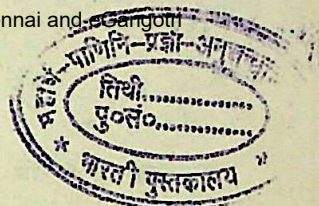 ennai and eGangotri
महर्षि-पाणिनि-प्रज्ञा-अनुसन्धान
तिथी..............
पु०सं०..............
* भारती पुस्तकालय *